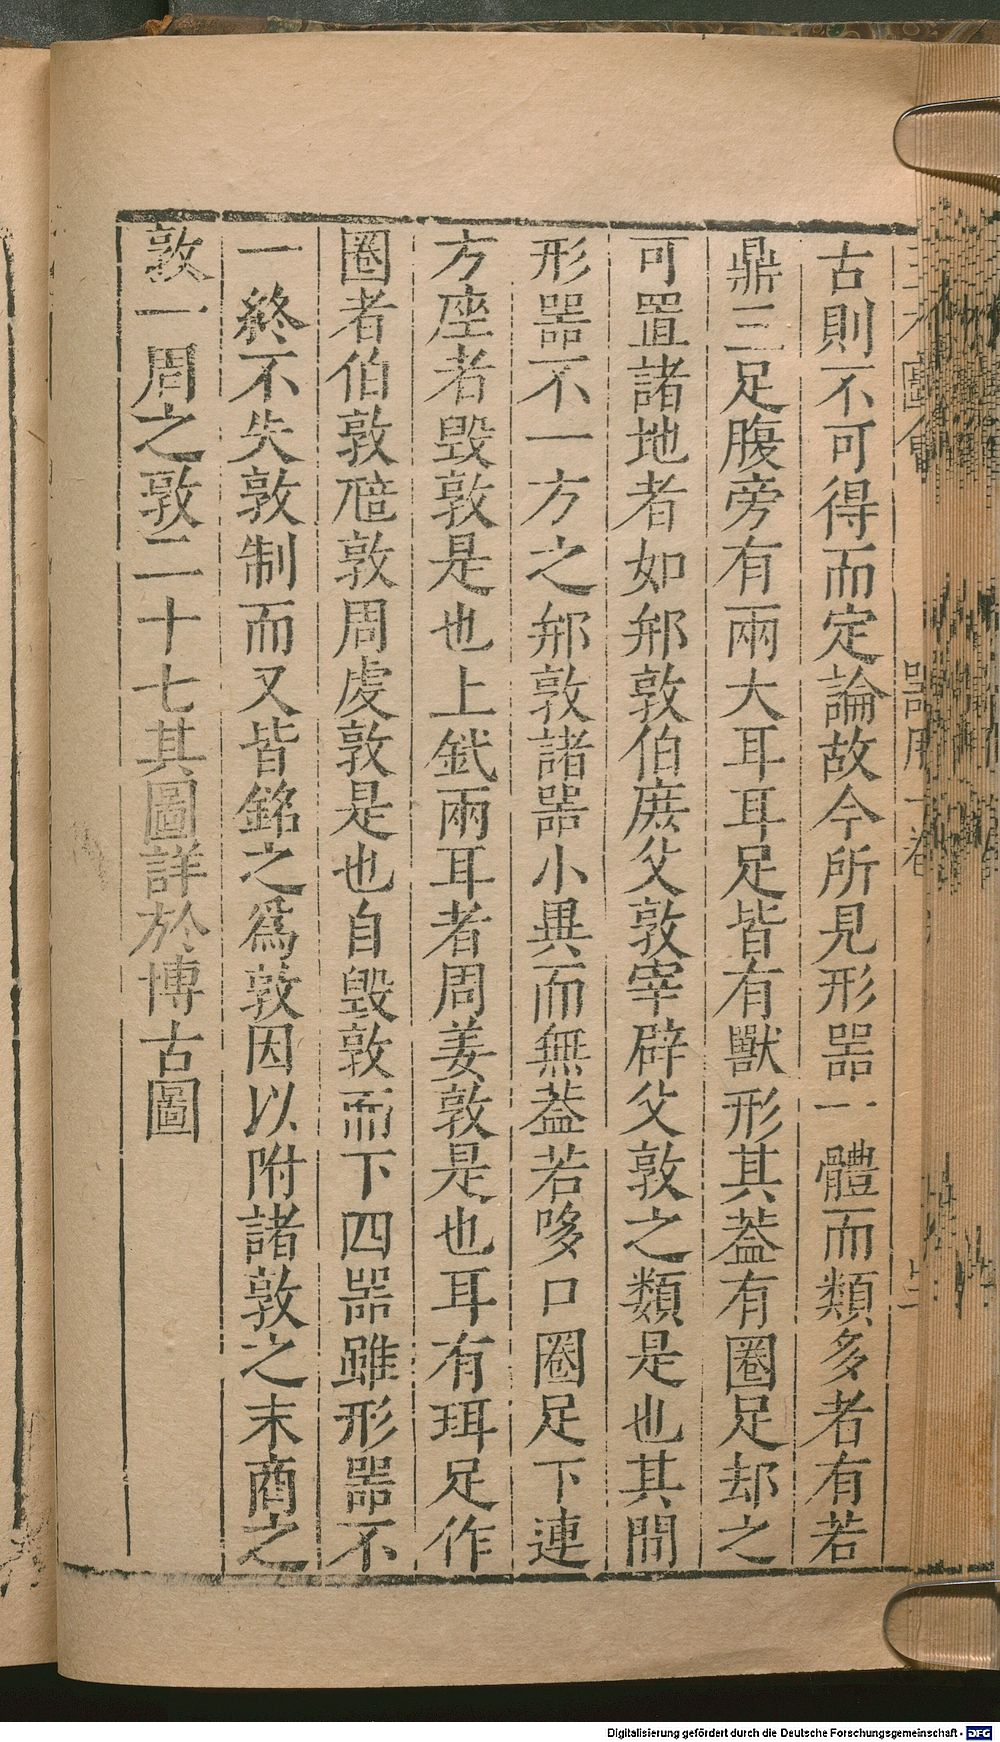 古則不可得而定論故今所見形噐一體而類多者有若
鼎三足腹旁有兩大耳耳足皆有獸形其葢有圈足却之
可置諸地者如䢵敦伯庶父敦宰辟父敦之類是也其間
形噐不一方之䢵敦諸噐小異而無葢若哆口圈足下連
方座者毁敦是也上鉽兩耳者周姜敦是也耳有珥足作
圈者伯敦敦周䖍敦是也自毁敦而下四噐雖形噐不
一終不失敦制而又皆銘之爲敦因以附諸敦之末商之
敦一周之敦二十七其圖詳於博古圖
Digitalisierung gefördert durch die Deutsche Forschungsgemeinschaft - DFG